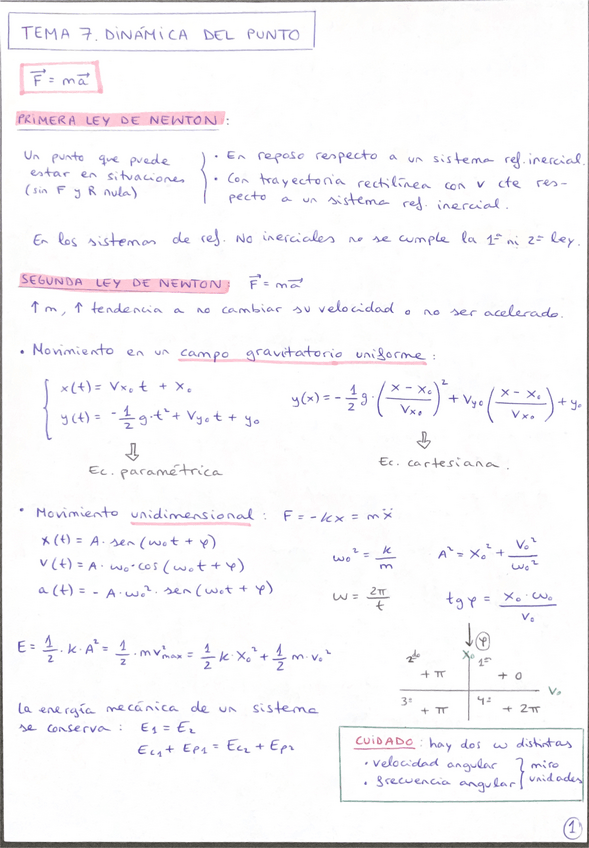 TEMA 7. DINÁMICA DEL PUNTO
F⃗ = ma⃗
PRIMERA LEY DE NEWTON:
Un punto que puede
estar en situaciones
(sin F y R nula)
· En reposo respecto a un sistema ref. inercial.
· Con trayectoria rectilínea con v cte res-
pecto a un sistema ref. inercial.
En los sistemas de ref. No inerciales no se cumple la 1ª ni 2ª ley.
SEGUNDA LEY DE NEWTON: F⃗ = ma⃗
↑ m, ↑ tendencia a no cambiar su velocidad o no ser acelerado.
· Movimiento en un campo gravitatorio uniforme:
x(t) = Vx₀ t + x₀
y(t) = -1/2 g·t² + Vy₀ t + y₀
⇓
Ec. paramétrica
y(x) = -1/2 g·((x - x₀)/Vx₀)² + Vy₀ ((x - x₀)/Vx₀) + y₀
⇓
Ec. cartesiana.
· Movimiento unidimensional: F = -kx = mẍ
x(t) = A· sen(ω₀t + φ)
v(t) = A· ω₀·cos(ω₀t + φ)
a(t) = -A·ω₀²· sen(ω₀t + φ)
ω₀² = k/m
A² = x₀² + V₀²/ω₀²
ω = 2π/t
tg φ = x₀·ω₀/v₀
E = 1/2·k·A² = 1/2·mv²max = 1/2 k·x₀² + 1/2 m·v₀²
φ
x₀
2º 1º
+π +0
v₀
3º 4º
+π +2π
La energía mecánica de un sistema
se conserva: E₁ = E₂
Ec₁ + Ep₁ = Ec₂ + Ep₂
CUIDADO: hay dos ω distintas
· velocidad angular
· frecuencia angular
miro
unidades
1